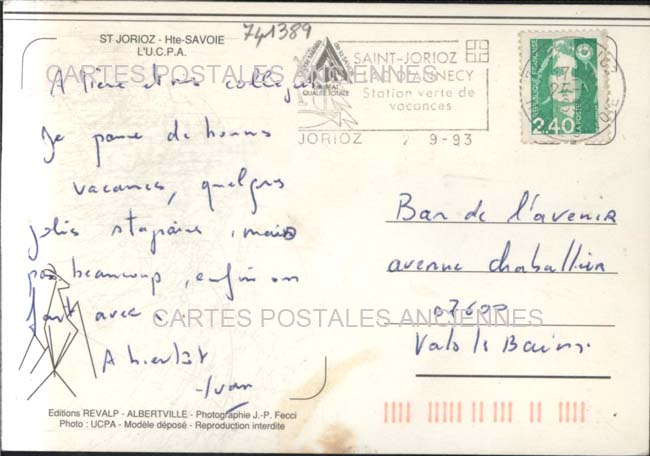 741389
ST JORIOZ - Hte-SAVOIE
L'U.C.P.A.
CARTES POSTALES ANCIENNES
A tous et nos collègues
Je passe de bonnes
vacances, quelques
jolis stagiaires, mais
pas beaucoup, enfin on
fait avec.
A bientôt
Ivan
CARTES POSTALES ANCIENNES
Editions REVALP - ALBERTVILLE - Photographie J.-P. Fecci
Photo : UCPA - Modèle déposé - Reproduction interdite
QUALITE TOTALE
SAINT-JORIOZ
LAC D'ANNECY
Station verte de
vacances
JORIOZ 2 9-93
REPUBLIQUE FRANÇAISE
LA POSTE
2,40
Bar de l'avenir
avenue chaballier
07600
Vals les Bains